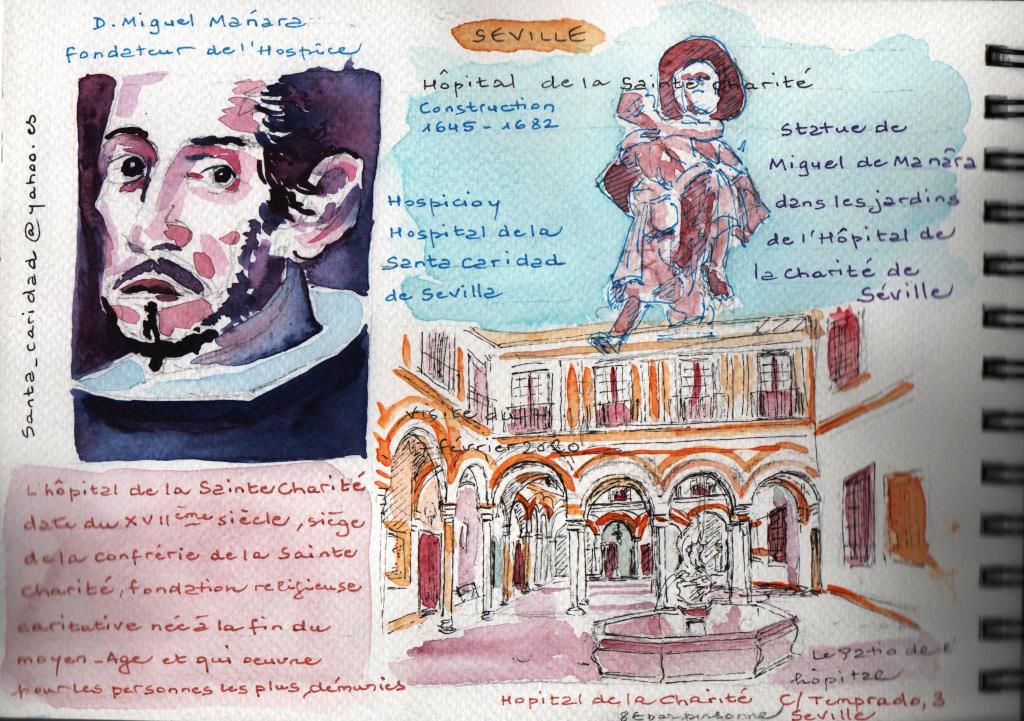 D. Miguel Mañara
fondateur de l'Hospice
SEVILLE
Hôpital de la Sainte Charité
Construction
1645 - 1682
Hospicio y
Hospital de la
Santa Caridad
de Sevilla
Statue de
Miguel de Manãra
dans les jardins
de l'Hôpital de
la Charité de
Séville
Santa_caridad @ yahoo.es
Visite du
17 février 2020
L'hôpital de la Sainte Charité
date du XVIIème siècle, siège
de la confrérie de la Sainte
Charité, fondation religieuse
caritative née à la fin du
moyen-Age et qui oeuvre
pour les personnes les plus démunies
Le patio de l'
hôpital
Hopital de la Charité C/ Temprado, 3
8€ par personne Séville